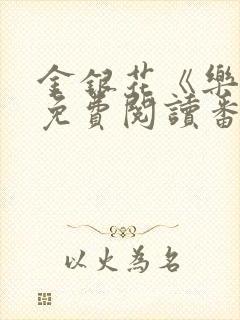 金銀花《樂
免費閱讀番
以火為名